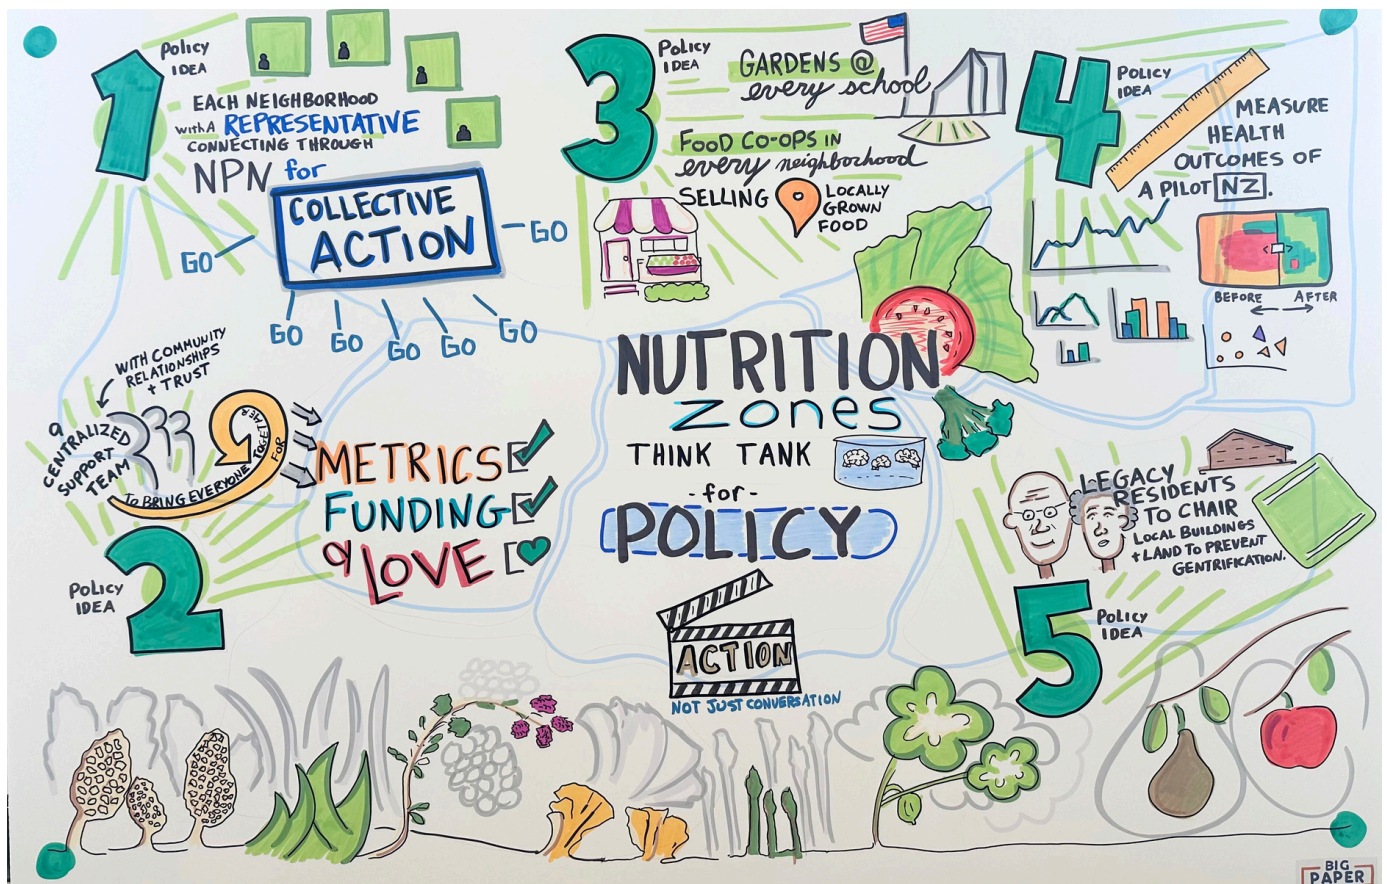 1
Policy
IDEA
EACH NEIGHBORHOOD
with A REPRESENTATIVE
CONNECTING THROUGH
NPN for
COLLECTIVE
ACTION
GO
GO
GO
GO
GO
GO
GO
WITH COMMUNITY
RELATIONSHIPS
+ TRUST
a
CENTRALIZED
SUPPORT
TEAM
To BRING EVERYONE TOGETHER
FOR
METRICS
FUNDING
& LOVE
Policy
IDEA
2
3
Policy
IDEA
GARDENS @
every school
FOOD CO-OPS IN
every neighborhood
SELLING
LOCALLY
GROWN
FOOD
NUTRITION
ZONES
THINK TANK
- for -
POLICY
ACTION
NOT JUST CONVERSATION
4
Policy
IDEA
MEASURE
HEALTH
OUTCOMES OF
A PILOT NZ.
BEFORE
AFTER
LEGACY
RESIDENTS
TO CHAIR
LOCAL BUILDINGS
+ LAND TO PREVENT
GENTRIFICATION.
5
Policy
IDEA
BIG
PAPER